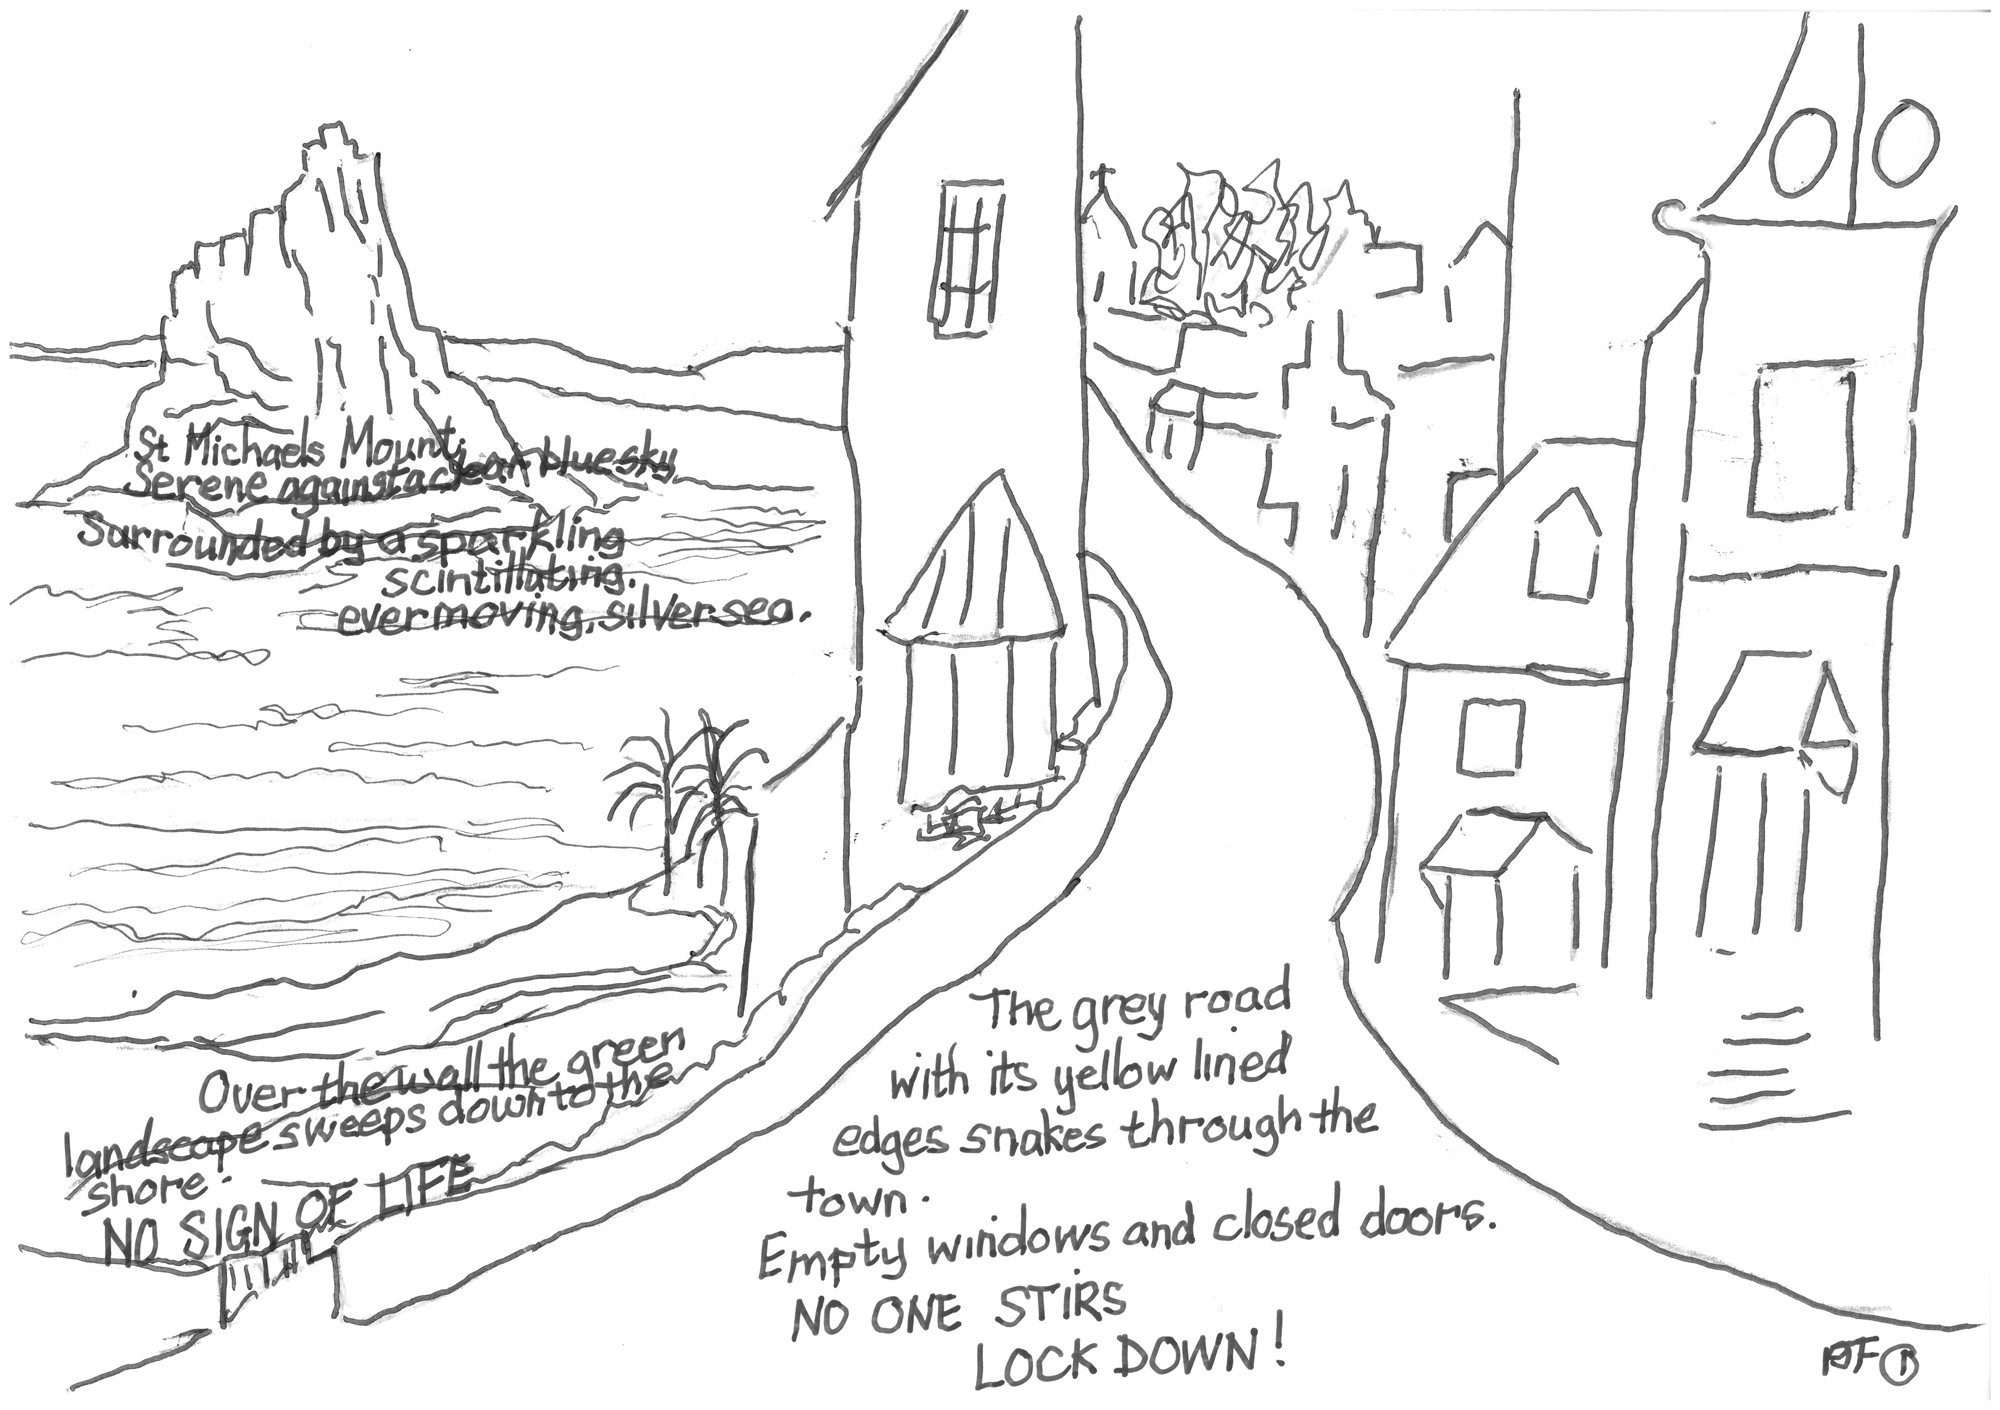 St Michaels Mount,
Serene against a clear blue sky,
Surrounded by a sparkling
scintillating.
ever moving, silver sea.
Over the wall the green
landscape sweeps down to the
shore.
NO SIGN OF LIFE
The grey road
with its yellow lined
edges snakes through the
town.
Empty windows and closed doors.
NO ONE STIRS
LOCK DOWN!